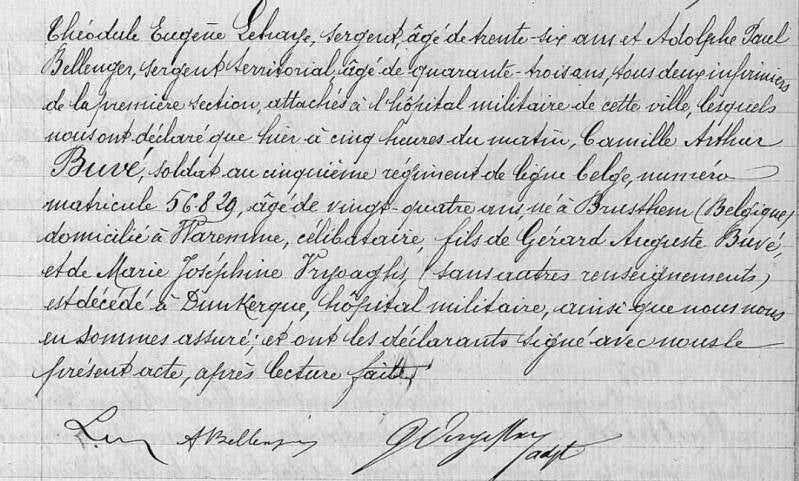 Théodule Eugène Lehaye, sergent, âgé de trente-six ans et Adolphe Paul
Bellenger, sergent territorial, âgé de quarante-trois ans, tous deux infirmiers
de la première section, attachés à l'hôpital militaire de cette ville, lesquels
nous ont déclaré que hier à cinq heures du matin, Camille Arthur
Buvé, soldat au cinquième régiment de ligne belge, numéro
matricule 56.829, âgé de vingt-quatre ans né à Brusthem (Belgique)
domicilié à Waremme, célibataire, fils de Gérard Auguste Buvé,
et de Marie Joséphine (sans autres renseignements)
est décédé à Dunkerque, hôpital militaire, ainsi que nous nous
en sommes assuré; et ont les déclarants signé avec nous le
présent acte, après lecture faite,
ABellenger adjt